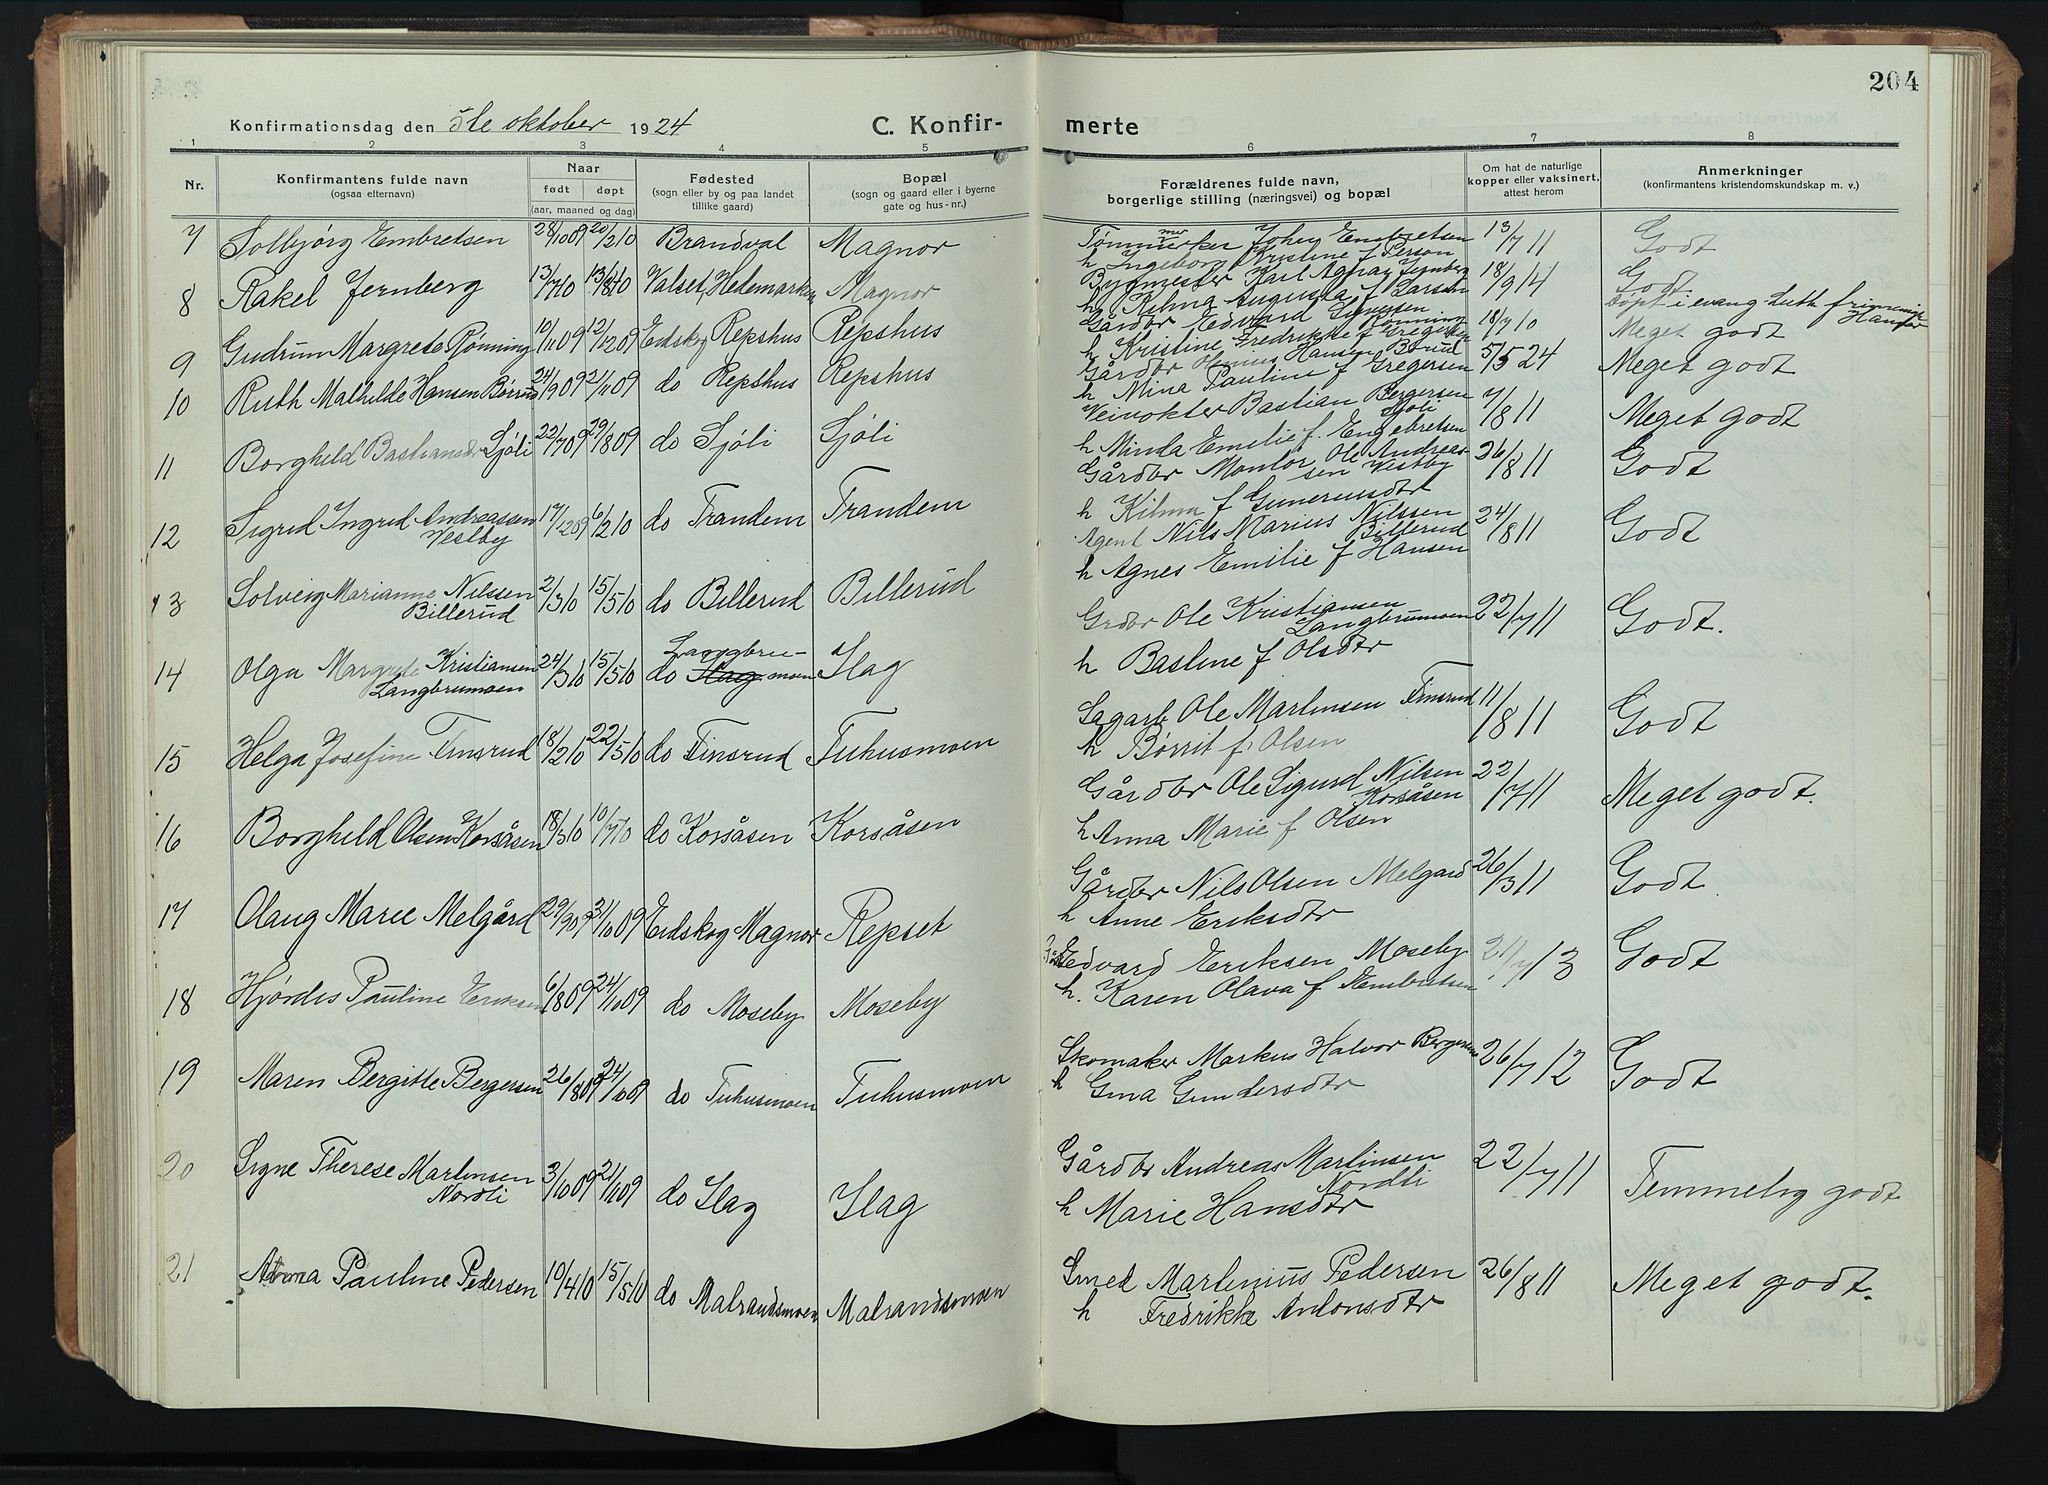 204
Konfirmationsdag den 5te oktober 1924
C. Konfir-
merte
1 2 3 4 5 6 7 8
Nr.
Konfirmantens fulde navn
(ogsaa efternavn)
Naar
født døpt
(aar, maaned og dag)
Fødested
(sogn eller by og paa landet
tillike gaard)
Bopæl
(sogn og gaard eller i byerne
gate og hus-nr.)
Forældrenes fulde navn,
borgerlige stilling (næringsvei) og bopæl
Om hat de naturlige
kopper eller vaksinert,
attest herom
Anmerkninger
(konfirmantens kristendomskundskap m. v.)
7 Solbjørg Embretsen 28/10 09 20/2 10 Brandval Magnor
Johen Embretsen 13/7 11 Godt
h Ingeborg Kristine f Person
8 Rakel Jernberg 13/7 10 13/8 10 Valset, Hedemarken Magnor
Bygmester Karl Agnar Jernberg 18/9 14 Godt
h Augusta f Larsen
Døpt i evang. luth. frimenigh
Hamar
9 Gudrun Margrete Rønning 10/11 09 12/12 09 Eidskog Repshus Repshus
Gårdbr Edvard
Rønning 10 Meget godt
h Kristine Fredrikke f Gregersen
10 Ruth Mathilde Hansen Børrud 24/9 09 21/11 09 do Repshus Repshus
Gårdbr Hansen Børrud 5/5 24 Meget godt
h Mina Pauline f Gregersen
11 Borghild Bastiansdr Sjøli 22/7 09 29/8 09 do Sjøli Sjøli
Veivokter Bastian Bergersen
Sjøli 7/8 11 Meget godt
h Minda Emelie f. Engebretsen
12 Sigrid Ingrid Andreassen
Vestby 17/12 09 6/2 10 do Trandem Trandem
Gårdbr Montør Ole Andreas-
sen Vestby 26/8 11 Godt
h Kilma f Guneriusdtr
13 Solveig Marianne Nilssen
Billerud 2/3 10 15/5 10 do Billerud Billerud
Agent Nils Marius Nilssen
Billerud 24/8 11 Godt
h Agnes Emilie f Hansen
14 Olga Margrete Kristiansen
Langbrumoen 24/3 10 15/5 10 do Slag Langbru-
moen Slag
Grdbr Ole Kristiansen
Langbrumoen 22/7 11 Godt.
h Basline f Olsdtr
15 Helga Josefine Finsrud 18/2 10 22/5 10 do Finsrud Tuhusmoen
Sagarb Ole Martinsen Finsrud 11/8 11 Godt
h Børrit f. Olsen
16 Borghild Olsen Korsåsen 18/3 10 10/7 10 do Korsåsen Korsåsen
Gårdbr Ole Sigurd Nilsen
Korsåsen 22/7 11 Meget godt.
h Anna Marie f Olsen
17 Olaug Marie Melgård 29/9 09 31/10 09 Eidskog Magnor Repset
Gårdbr Nils Olsen Melgard 26/3 11 Godt
h Anne Eriksdtr
18 Hjørdis Pauline Eriksen 6/8 09 24/10 09 do Moseby Moseby
Edvard Eriksen Moseby 21/7 13 Godt
h. Karen Olava f Hembretsen
19 Maren Bergitte Bergersen 26/8 09 24/10 09 do Tuhusmoen Tuhusmoen
Skomaker Markus Halvor Bergersen 26/7 12 Godt
h Gina Gundersdtr
20 Signe Therese Martinsen
Nordli 3/10 09 21/11 09 do Slag Slag
Gårdbr Andreas Martinsen
Nordli 22/7 11 Temmelig godt
h Marie Hansdtr
21 Pauline Pedersen 10/4 10 15/5 10 do Matrandsmoen Matrandsmoen
Smed Martinius Pedersen 26/8 11 Meget godt.
h Fredrikke Antonsdtr